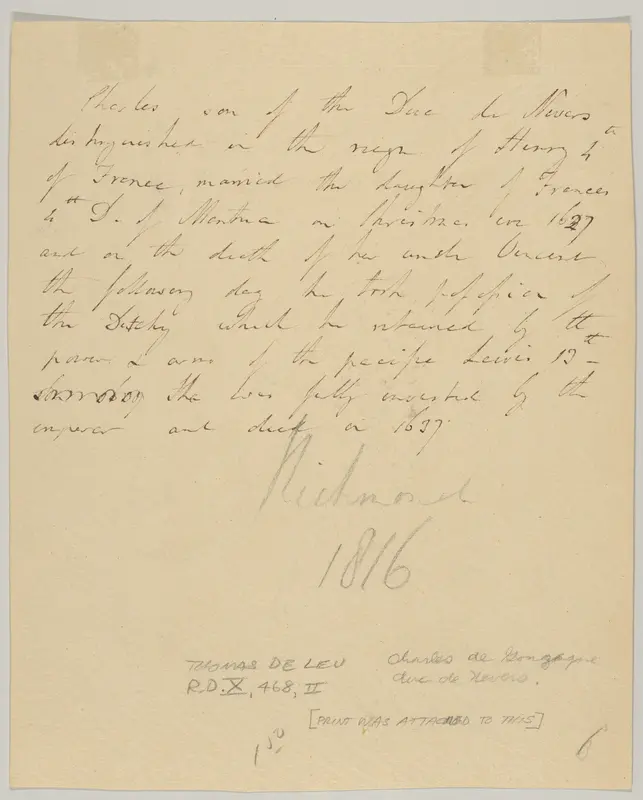 Charles son of the Duc de Nevers
distinguished in the reign of Henry 4th
of France, married the daughter of Frances
4th D. of Mantua on Christmas eve 1627
and on the death of her uncle Vincent
the following day he took possession of
the Dutchy which he retained by the
power & arms of the Lewis 13th
he was fully invested by the
emperor and died in 1637.
Richmond
1816
THOMAS DE LEU
R.D. X, 468, II
Charles de Gonzague
duc de Nevers.
[PRINT WAS ATTACHED TO THIS]
1.50
6